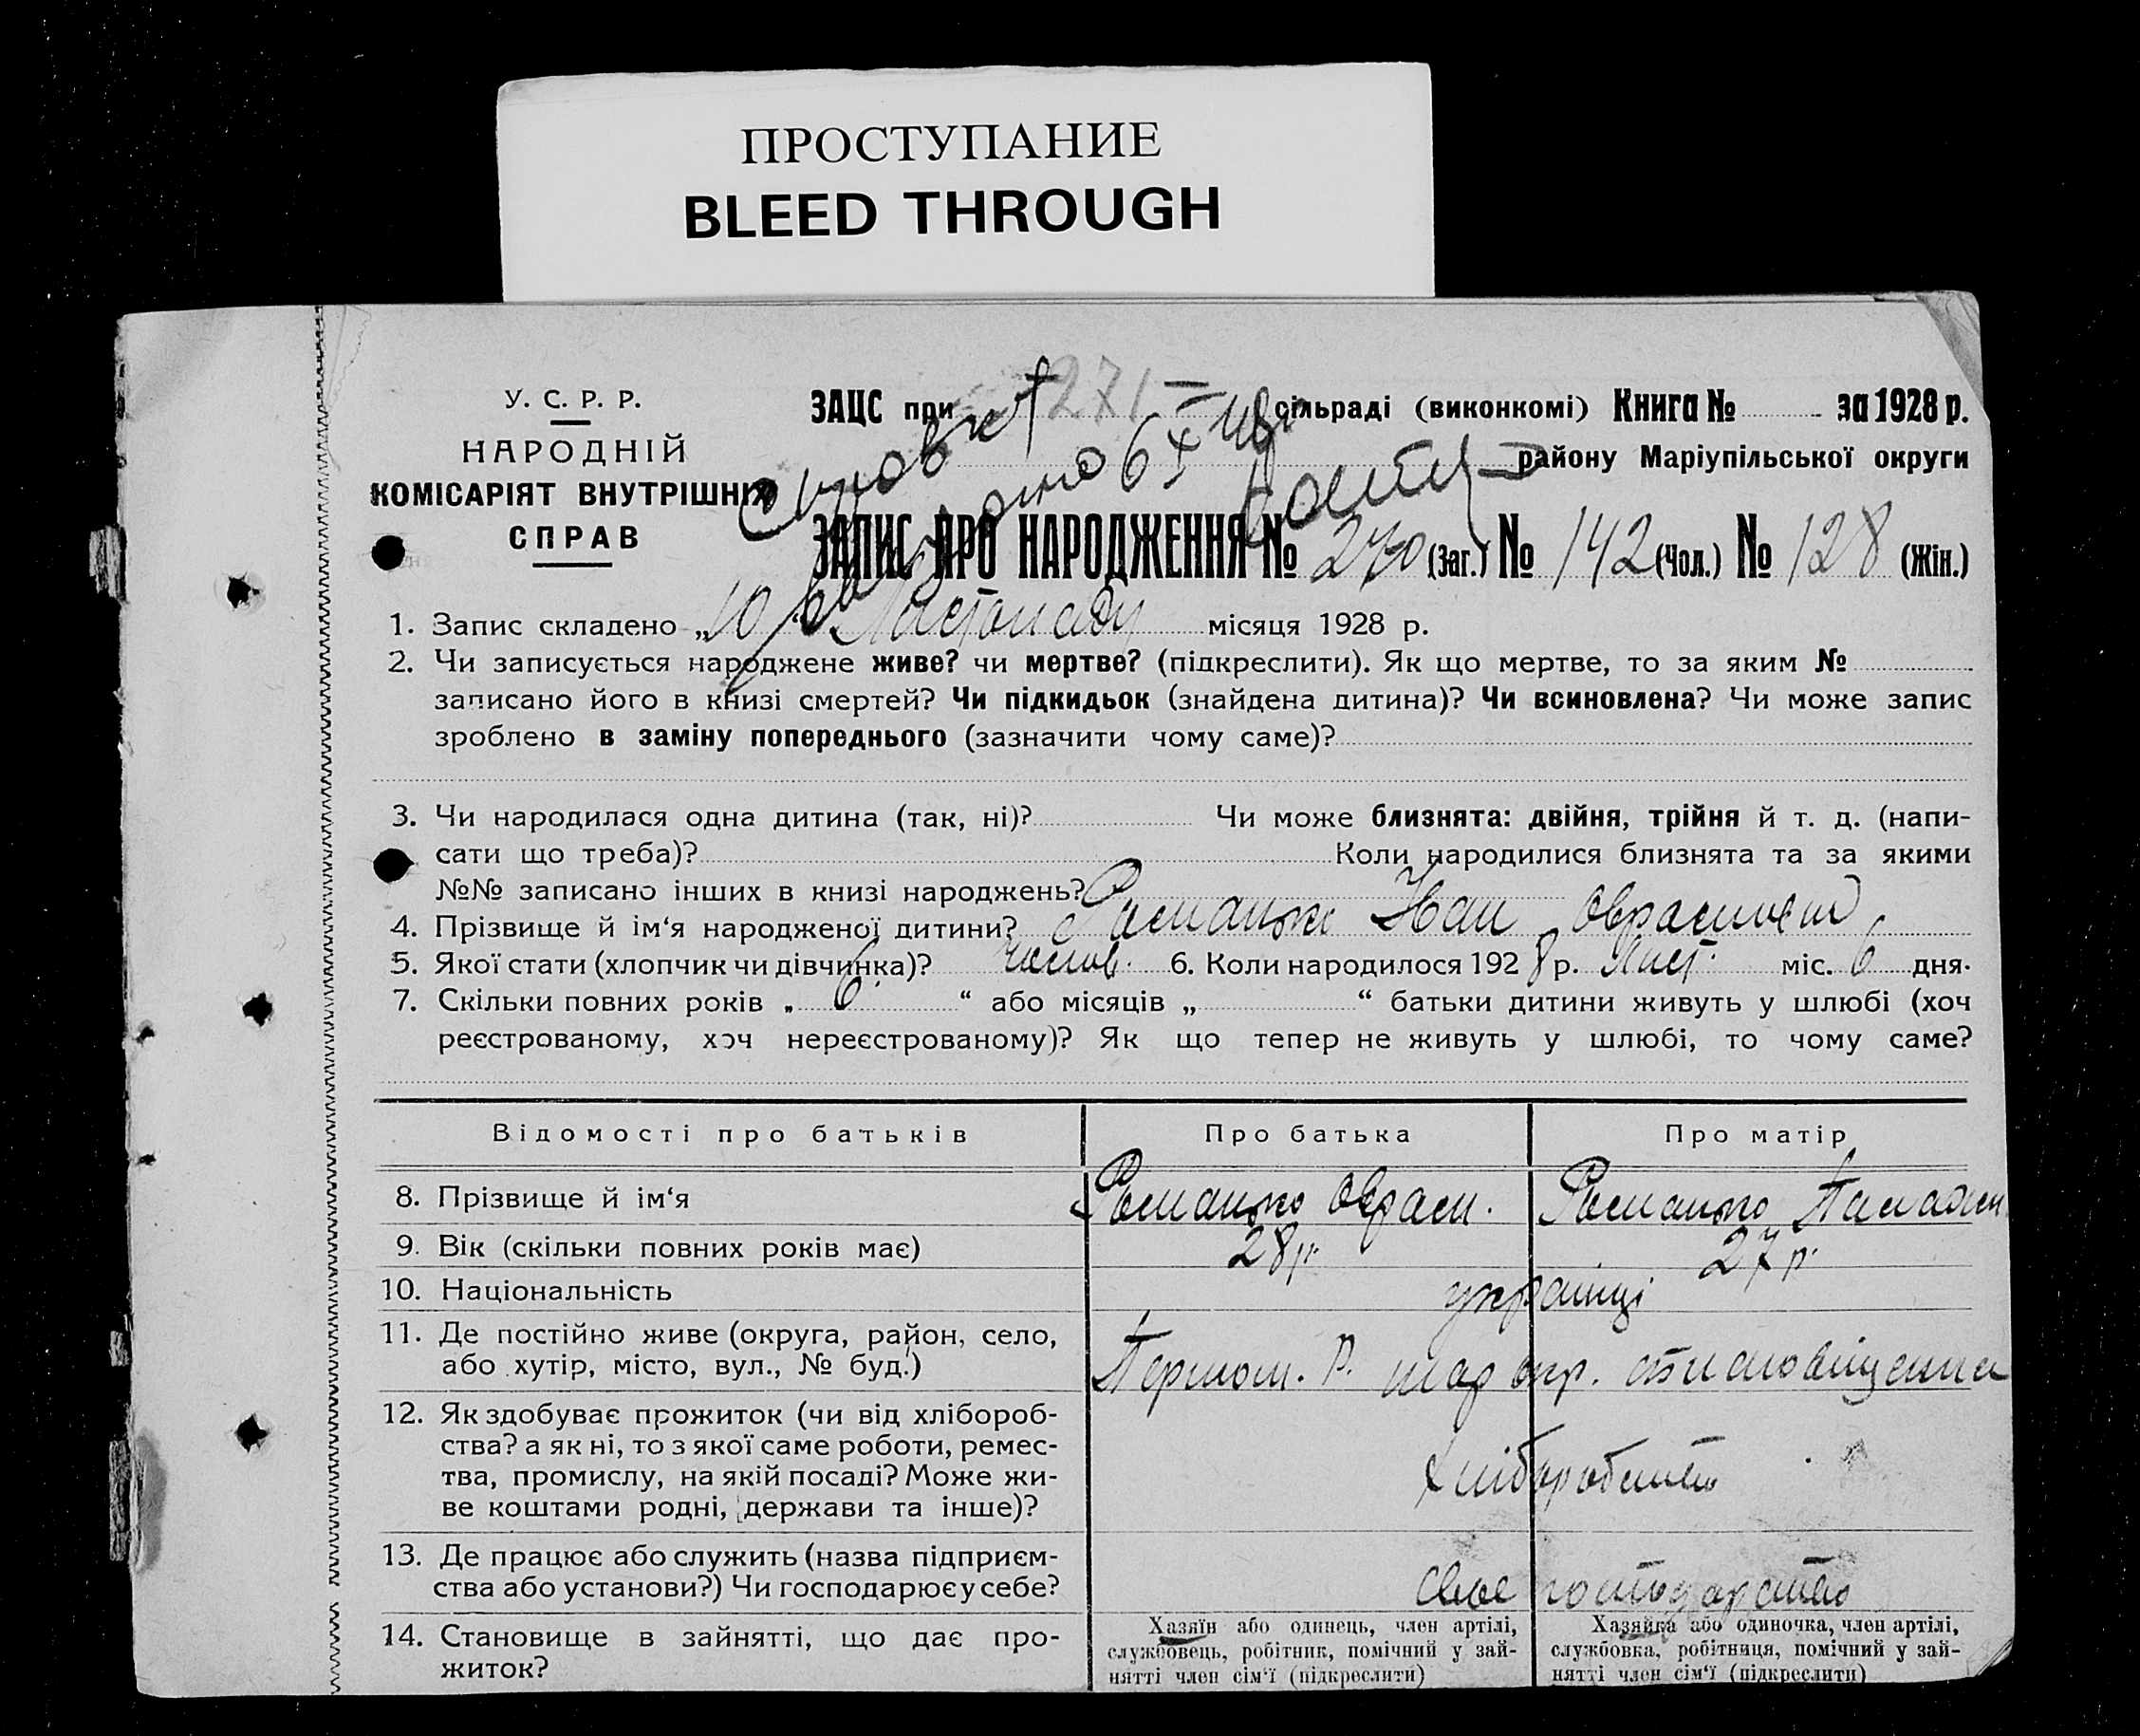 ПРОСТУПАНИЕ
BLEED THROUGH
У. С. Р. Р.
НАРОДНІЙ
КОМІСАРІЯТ ВНУТРІШНІХ
СПРАВ
271
ЗАЦС при сільраді (виконкомі) Книга № за 1928 р.
району Маріупільської округи
ЗАПИС ПРО НАРОДЖЕННЯ № 270 (Заг.) № 142 (Чол.) № 128 (Жін.)
1. Запис складено „10“ Листопаду місяця 1928 р.
2. Чи записується народжене живе? чи мертве? (підкреслити). Як що мертве, то за яким №
записано його в книзі смертей? Чи підкидьок (знайдена дитина)? Чи всиновлена? Чи може запис
зроблено в заміну попереднього (зазначити чому саме)?
3. Чи народилася одна дитина (так, ні)? Чи може близнята: двійня, трійня й т. д. (напи-
сати що треба)? Коли народилися близнята та за якими
№№ записано інших в книзі народжень?
4. Прізвище й ім‘я народженої дитини? Романько Іван
5. Якої стати (хлопчик чи дівчинка)? 6. Коли народилося 1928 р. Лист. міс. 6 дня.
7. Скільки повних років „ 6 “ або місяців „ “ батьки дитини живуть у шлюбі (хоч
реєстрованому, хоч нереєстрованому)? Як що тепер не живуть у шлюбі, то чому саме?
Відомості про батьків Про батька Про матір
8. Прізвище й ім‘я Романько Романько
9. Вік (скільки повних років має) 28 р. 27 р.
10. Національність українці
11. Де постійно живе (округа, район, село,
або хутір, місто, вул., № буд.) р. мар окр.
12. Як здобуває прожиток (чи від хлібороб-
ства? а як ні, то з якої саме роботи, ремес-
тва, промислу, на якій посаді? Може жи-
ве коштами родні, держави та інше)?
Хліборобство
13. Де працює або служить (назва підприєм-
ства або установи?) Чи господарює у себе?
своє господарство
14. Становище в зайнятті, що дає про-
житок?
Хазяїн або одинець, член артілі,
службовець, робітник, помічний у зай-
нятті член сім‘ї (підкреслити)
Хазяйка або одиночка, член артілі,
службовка, робітниця, помічний у зай-
нятті член сім‘ї (підкреслити)